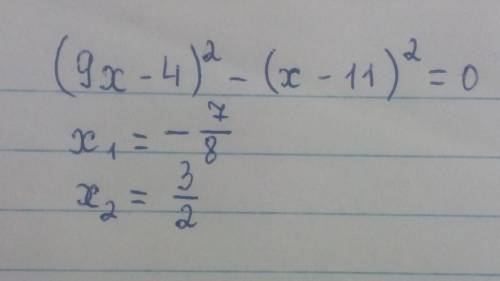 (9x - 4)² - (x - 11)² = 0
x₁ = - 7/8
x₂ = 3/2